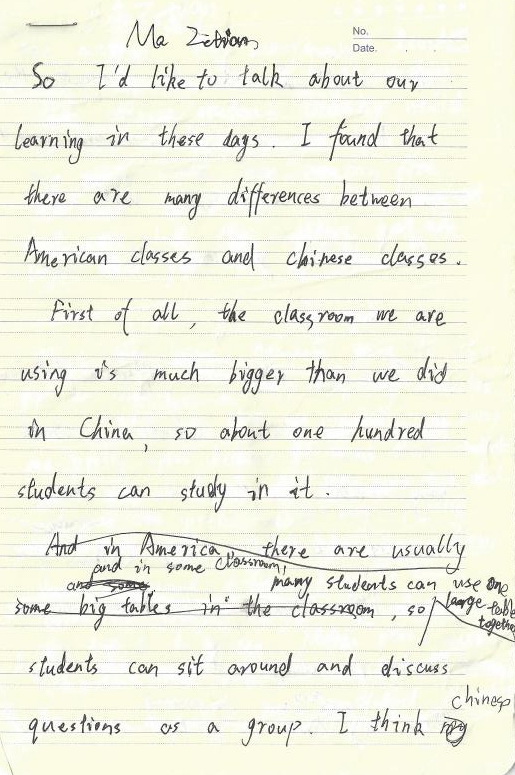 No.
Date.
Ma
So I'd like to talk about our
learning in these days. I found that
there are many differences between
American classes and chinese classes.
First of all, the classroom we are
using is much bigger than we did
in China, so about one hundred
students can study in it.
And in America there are usually
and in some classroom, many students can use one large table together
and some
some big tables in the classroom, so
students can sit around and discuss
questions as a group. I think my chinese